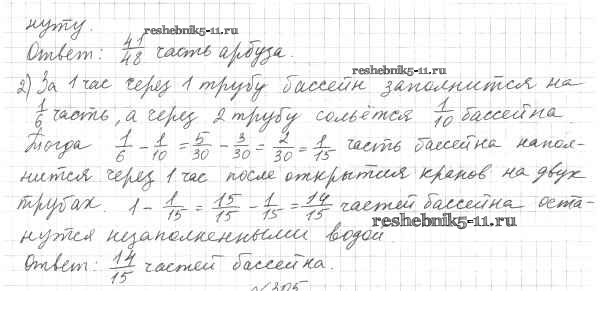 нуту.
reshebnik5-11.ru
Ответ: 41/48 часть арбуза.
reshebnik5-11.ru
2) За 1 час через 1 трубу бассейн заполнится на
1/6 часть, а через 2 трубу сольётся 1/10 бассейна
Тогда 1/6 - 1/10 = 5/30 - 3/30 = 2/30 = 1/15 часть бассейна напол-
нится через 1 час после открытия кранов на двух
трубах. 1 - 1/15 = 15/15 - 1/15 = 14/15 частей бассейна оста-
reshebnik5-11.ru
нутся незаполненными водой.
Ответ: 14/15 частей бассейна.